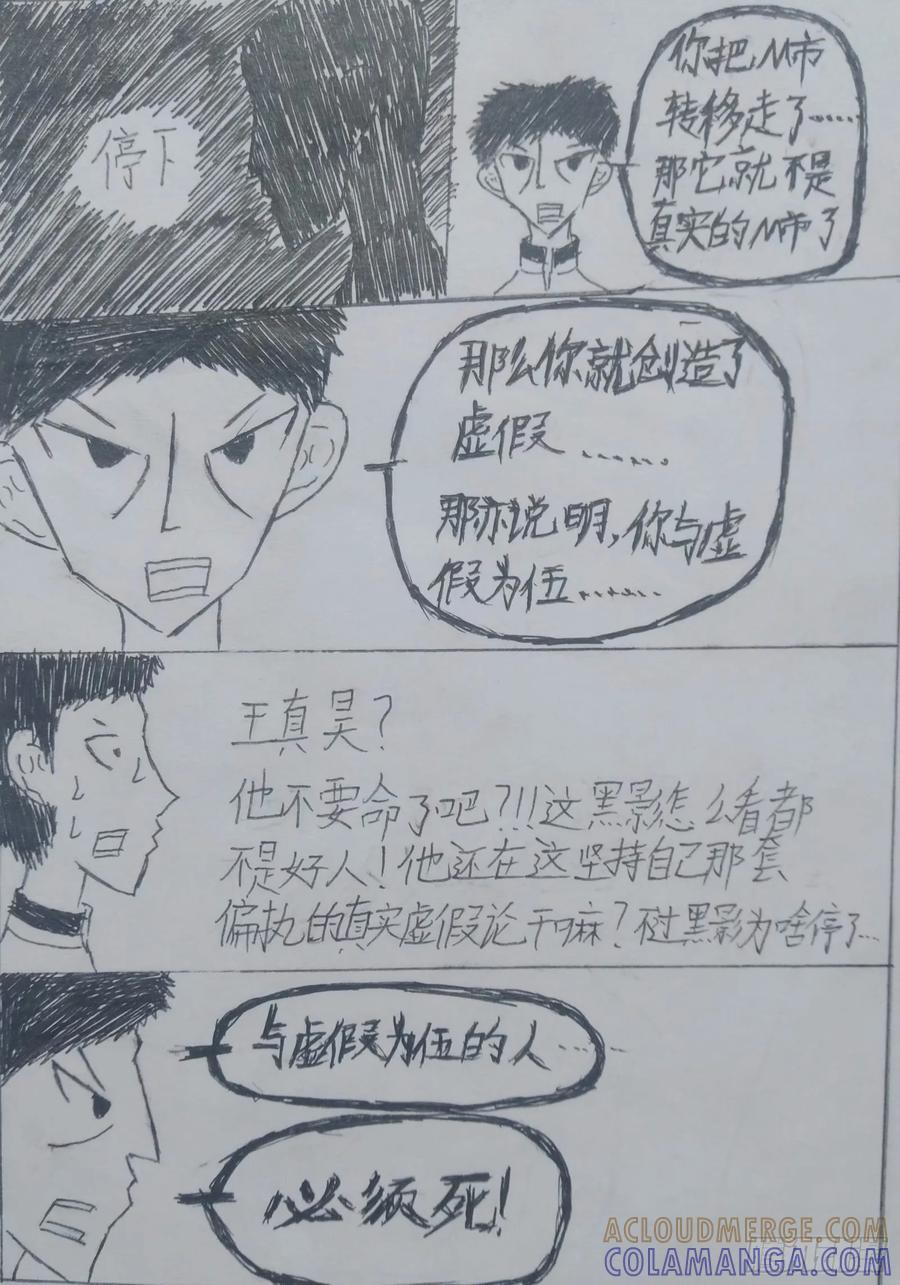 停下
你把M市
转移走了......
那它就不是
真实的M市了
那么你就创造了
虚假.......
那亦说明,你与虚
假为伍.......
王真昊?
他不要命了吧?!!!这黑影怎么看都
不是好人!他还在这坚持自己那套
偏执的真实虚假论干嘛?不过黑影为啥停了...
与虚假为伍的人......
必须死!
ACLOUDMERGE.COM
COLAMANGA.COM